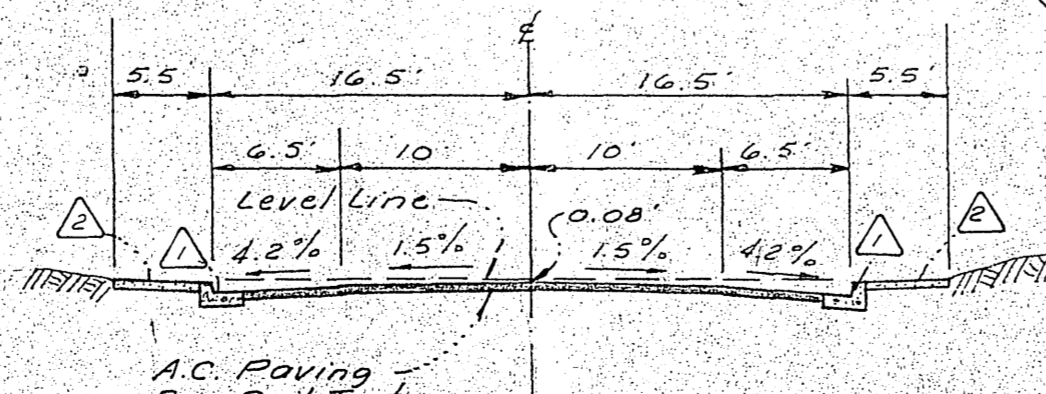 ℄
5.5' 16.5' 16.5' 5.5'
6.5' 10 10' 6.5'
Level Line
0.08'
2 1 4.2% 1.5% 1.5% 4.2% 1 2
A.C. Paving